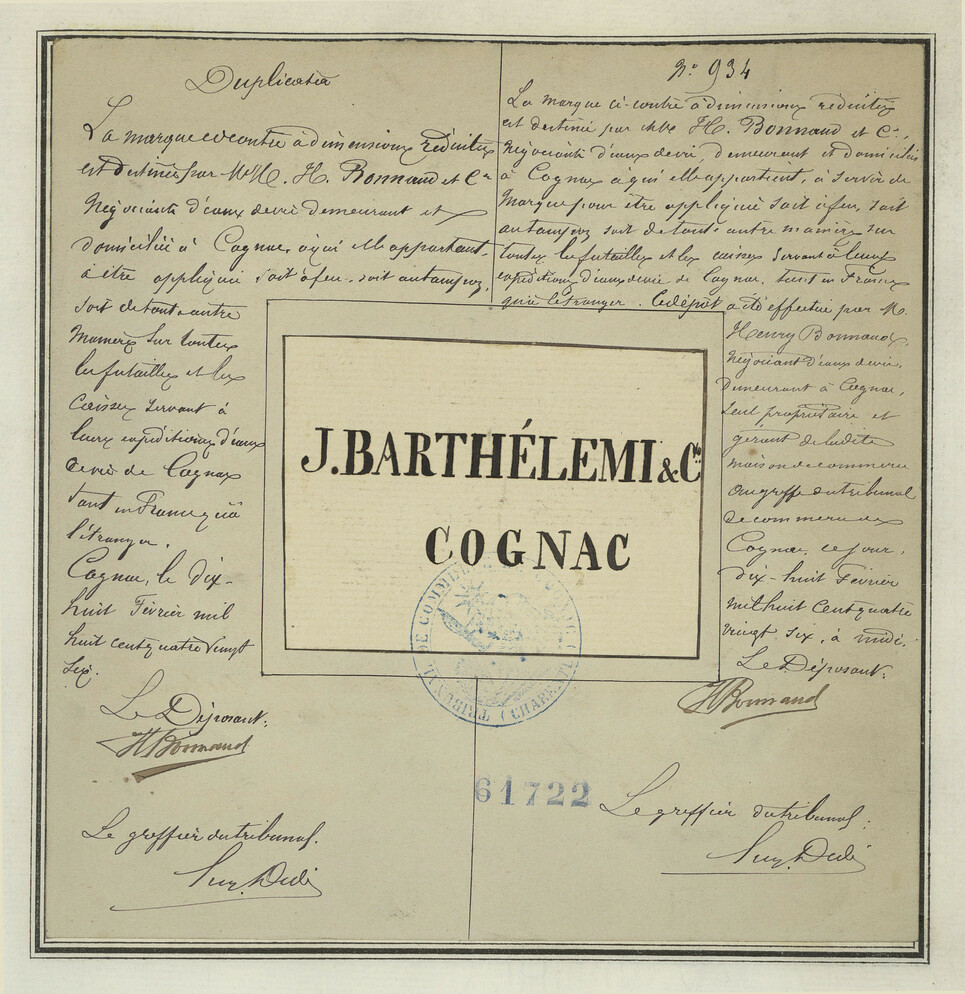 Duplicata
La marque ci-contre à dimensions réduites
est destinée par MM. H. Bonnaud et Cie
Négociants d'eaux de vie demeurant et
domiciliés à Cognac, à qui elle appartient,
à être appliquée soit à feu, soit au tampon,
soit de toute autre
manière sur toutes
les futailles et les
caisses servant à
leurs expéditions d'eaux
de vie de Cognac
tant en France qu'à
l'étranger.
Cognac, le dix-
huit Février mil
huit cent quatre vingt
six.
Le Déposant:
HBonnaud
Le greffier du tribunal.
N° 934
La marque ci-contre à dimensions réduites
est destinée par MM. H. Bonnaud et Cie,
Négociants d'eaux de vie, demeurant et domiciliés
à Cognac à qui elle appartient, à servir de
Marque pour être appliquée soit à feu, soit
au tampon soit de toute autre manière sur
toutes les futailles et les caisses servant à leurs
expéditions d'eaux de vie de Cognac tant en France
qu'à l'étranger. Ce dépôt a été effectué par M.
Henry Bonnaud,
Négociant d'eaux de vie,
Demeurant à Cognac,
seul propriétaire et
gérant de la dite
maison de commerce
au greffe du tribunal
de commerce de
Cognac, ce jour,
dix-huit Février
mil huit cent quatre
vingt six, à midi.
Le Déposant:
HBonnaud
Le greffier du tribunal:
J. BARTHÉLEMI & Cie
COGNAC
TRIBUNAL DE COMMERCE DE COGNAC (CHARENTE)
61722